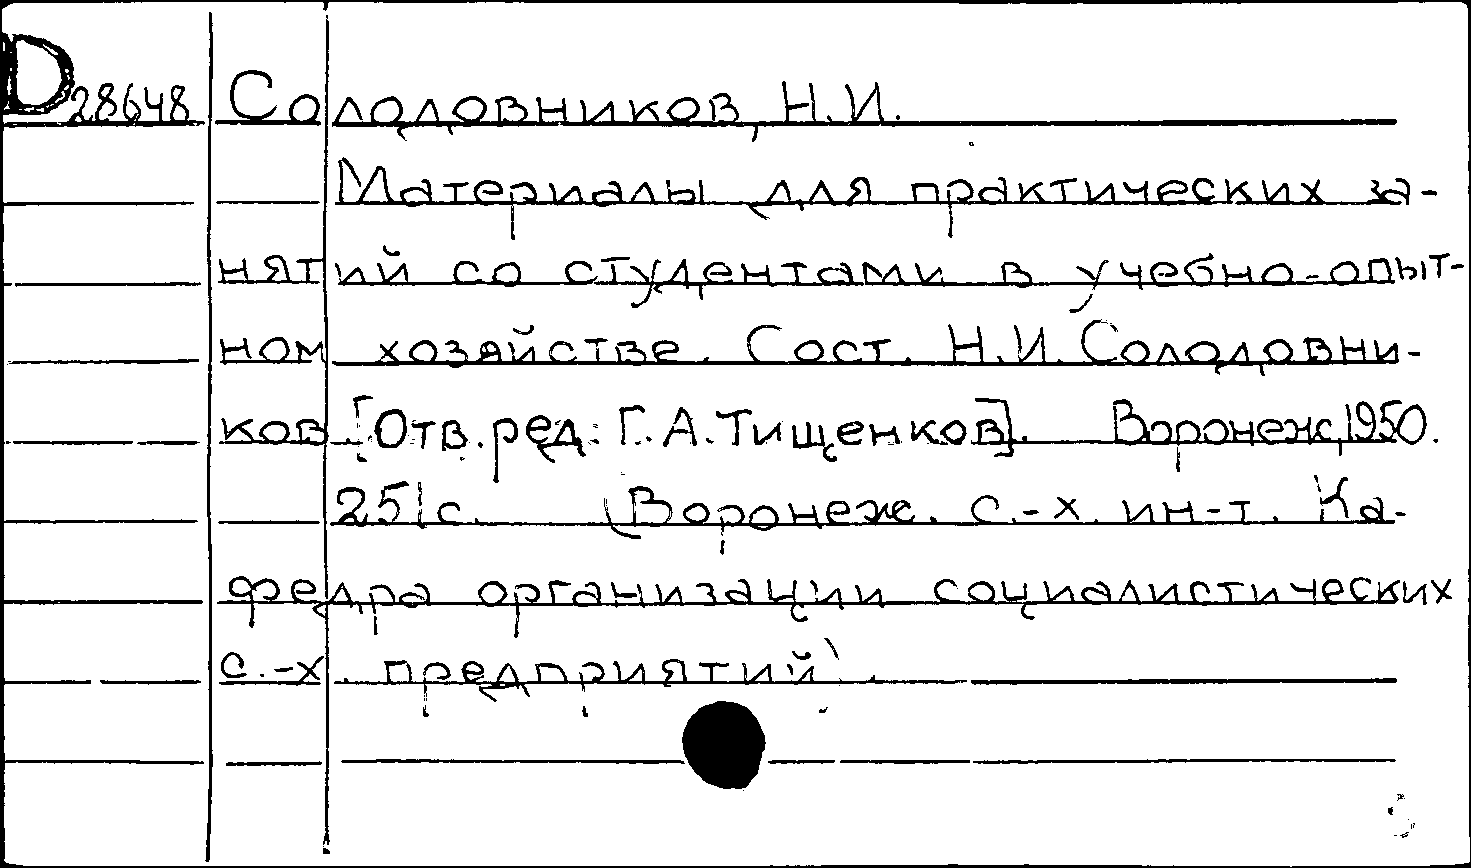 D 28648 Солодовников, Н.И.
Материалы для практических за-
нятий со студентами в учебно-опыт-
ном хозяйстве. Сост. Н.И. Солодовни-
ков [Отв. ред: Г.А. Тищенков]. Воронеж, 1950.
251 с. (Воронеж. с.-х. ин-т. Ка-
федра организации социалистических
с.-х. предприятий).